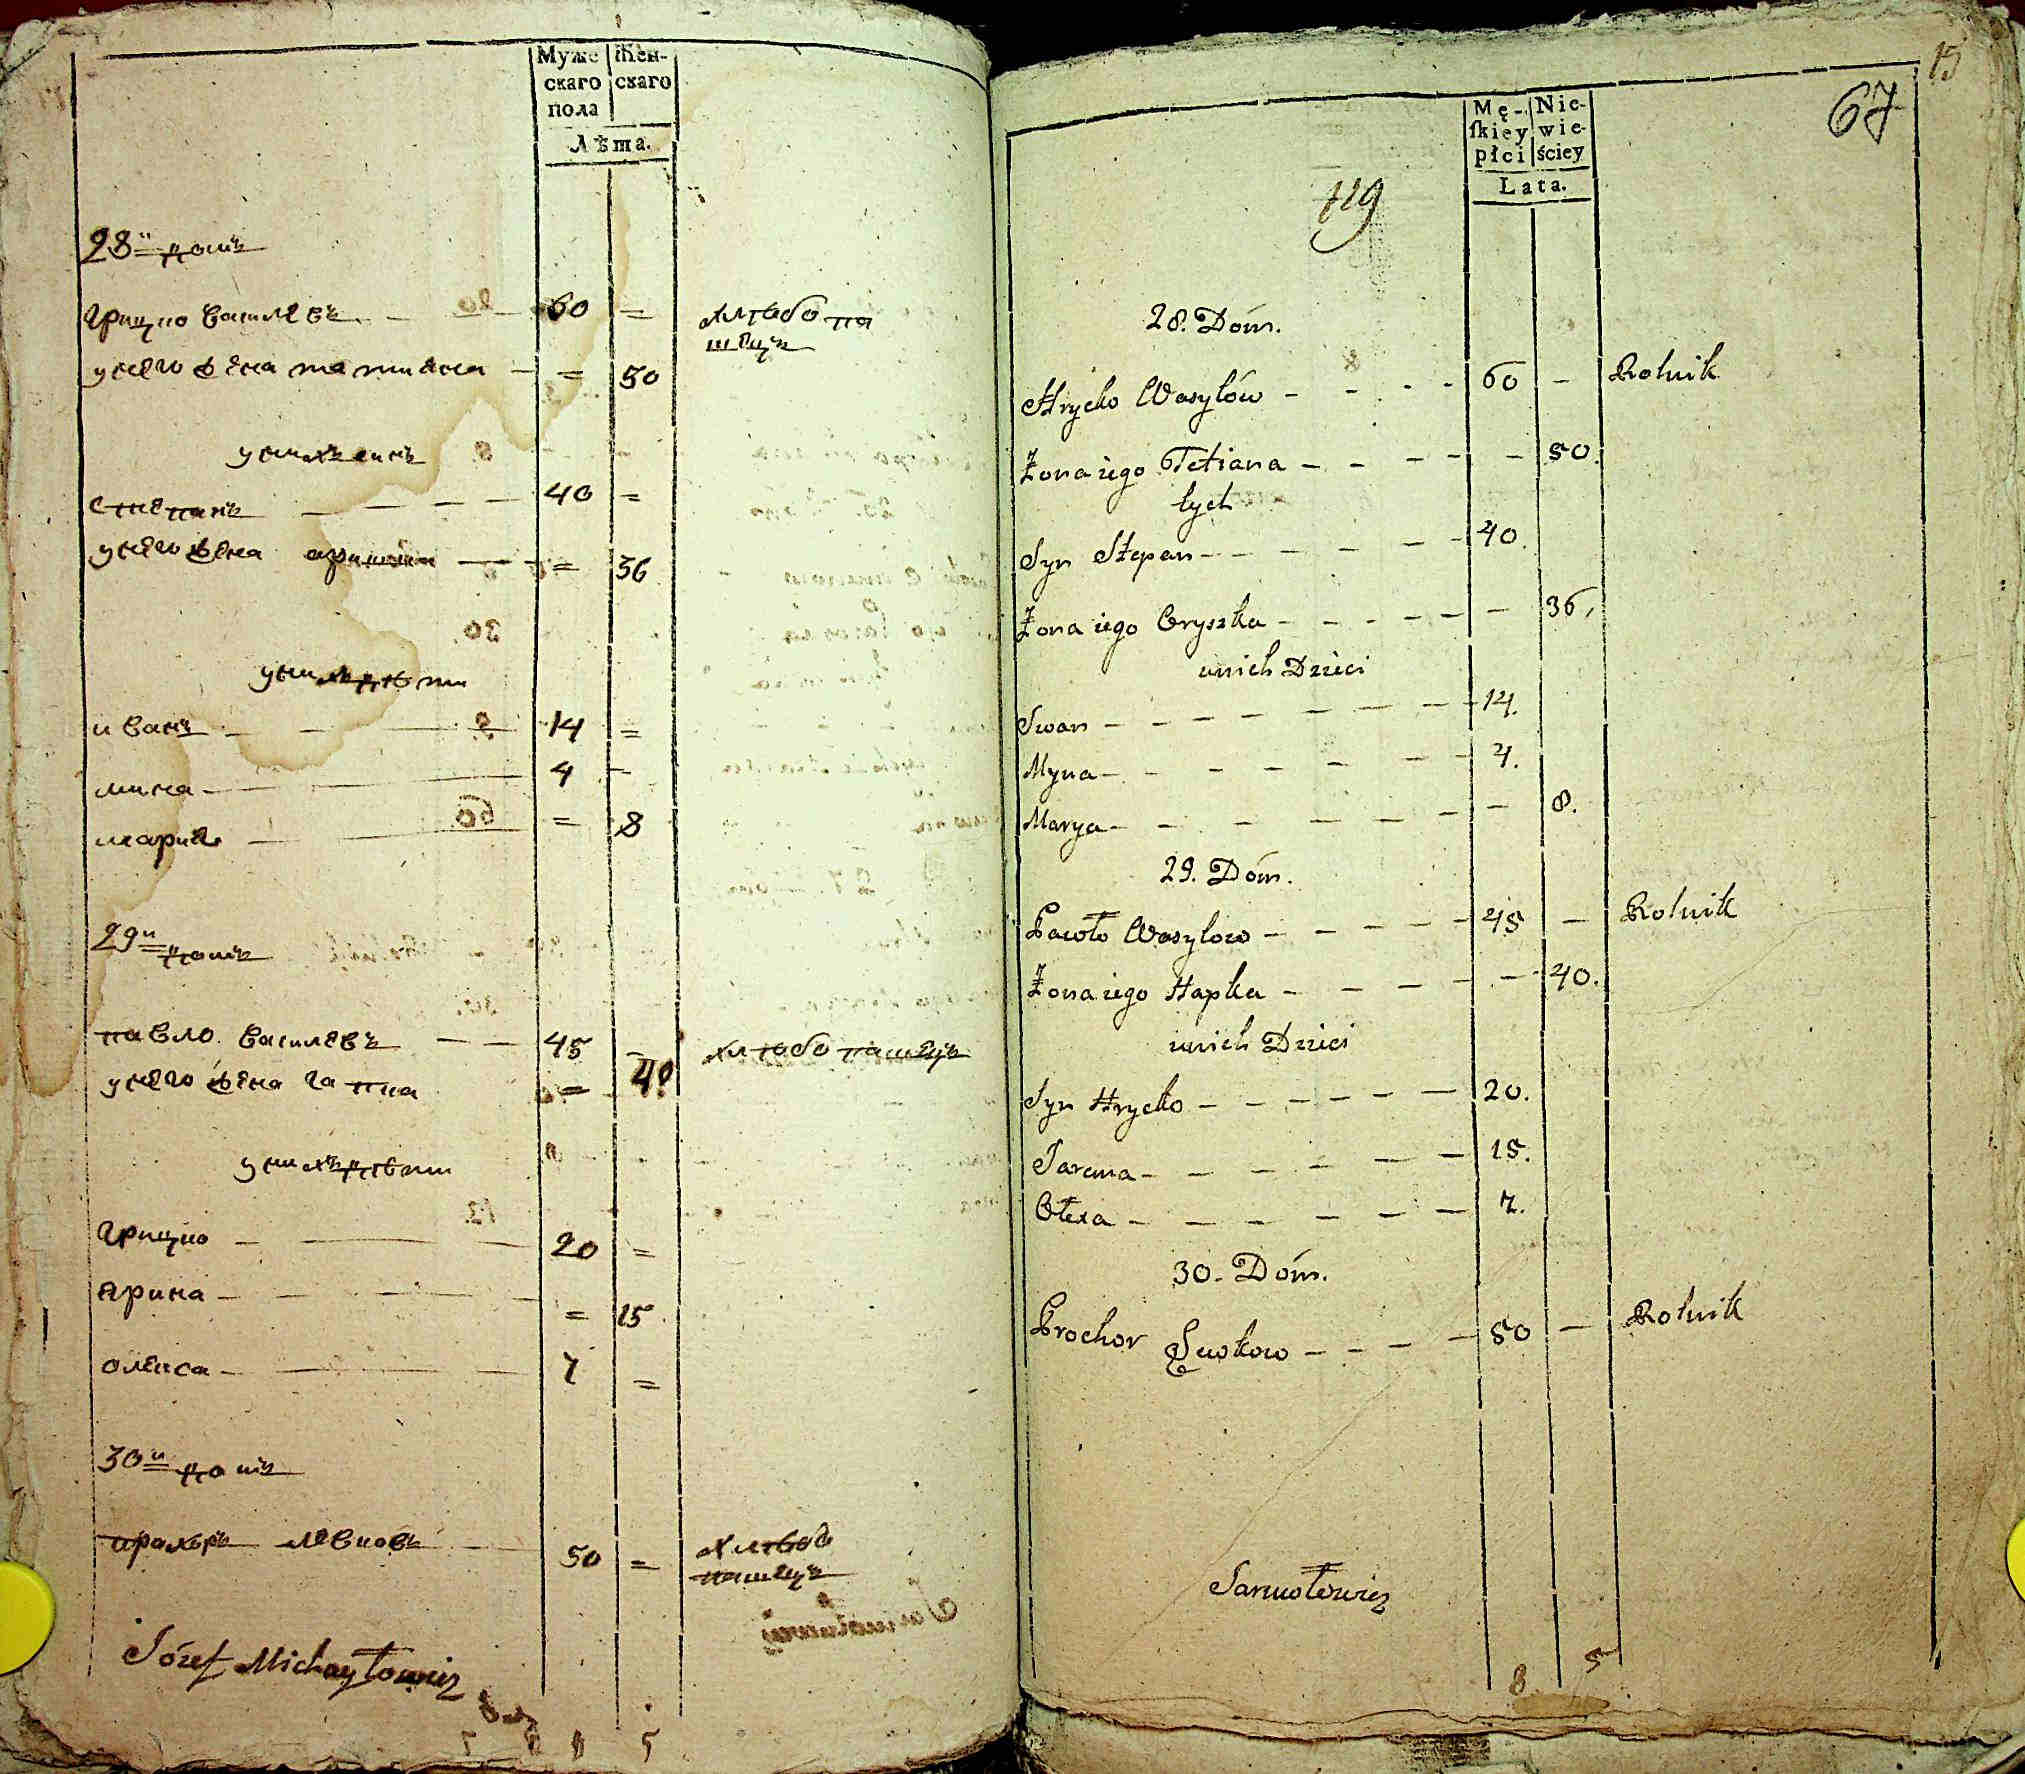 Муже Жен-
скаго скаго
пола
Лѣта.
28й домъ
грицко василевъ 60 = хлѣбо па
шецъ
унего жена татияна - = 50
унихъ синъ
степанъ 40 =
унего жена аришка = 36
унихъ дѣти
иванъ 14 =
мина 4 -
мария = 8
29й домъ
павло василевъ 45 - хлѣбо пашецъ
унего жена гапка = 40
унихъ дѣти
грицко 20 =
ярина = 15
олекса 7 =
30й домъ
прохоръ левковъ 50 = хлѣбо
пашецъ
Józef Michayłowicz
8 5
15
67
Mę- Nie-
ſkiey wie-
płci ściey
Lata.
119
28. Dóm.
Hrycko Wasylów - - - - 60 - Rolnik
Żona iego Tetiana - - - - - 50.
tych
Syn Stepan - - - - - 40.
Żona iego Oryszka - - - - - - 36.
unich Dzieci
Iwan - - - - - - - 14.
Myna - - - - - - - 4.
Marya - - - - - - - 8.
29. Dóm.
Pawło Wasylow - - - - - 45 - Rolnik
Żona iego Hapka - - - - - - 40.
unich Dzieci
Syn Hrycko - - - - - - 20.
Jarena - - - - - - 15.
Ołexa - - - - - - 7.
30. Dóm.
Prochor Lewkow - - - - 50 - Rolnik
Samotowicz
8 5